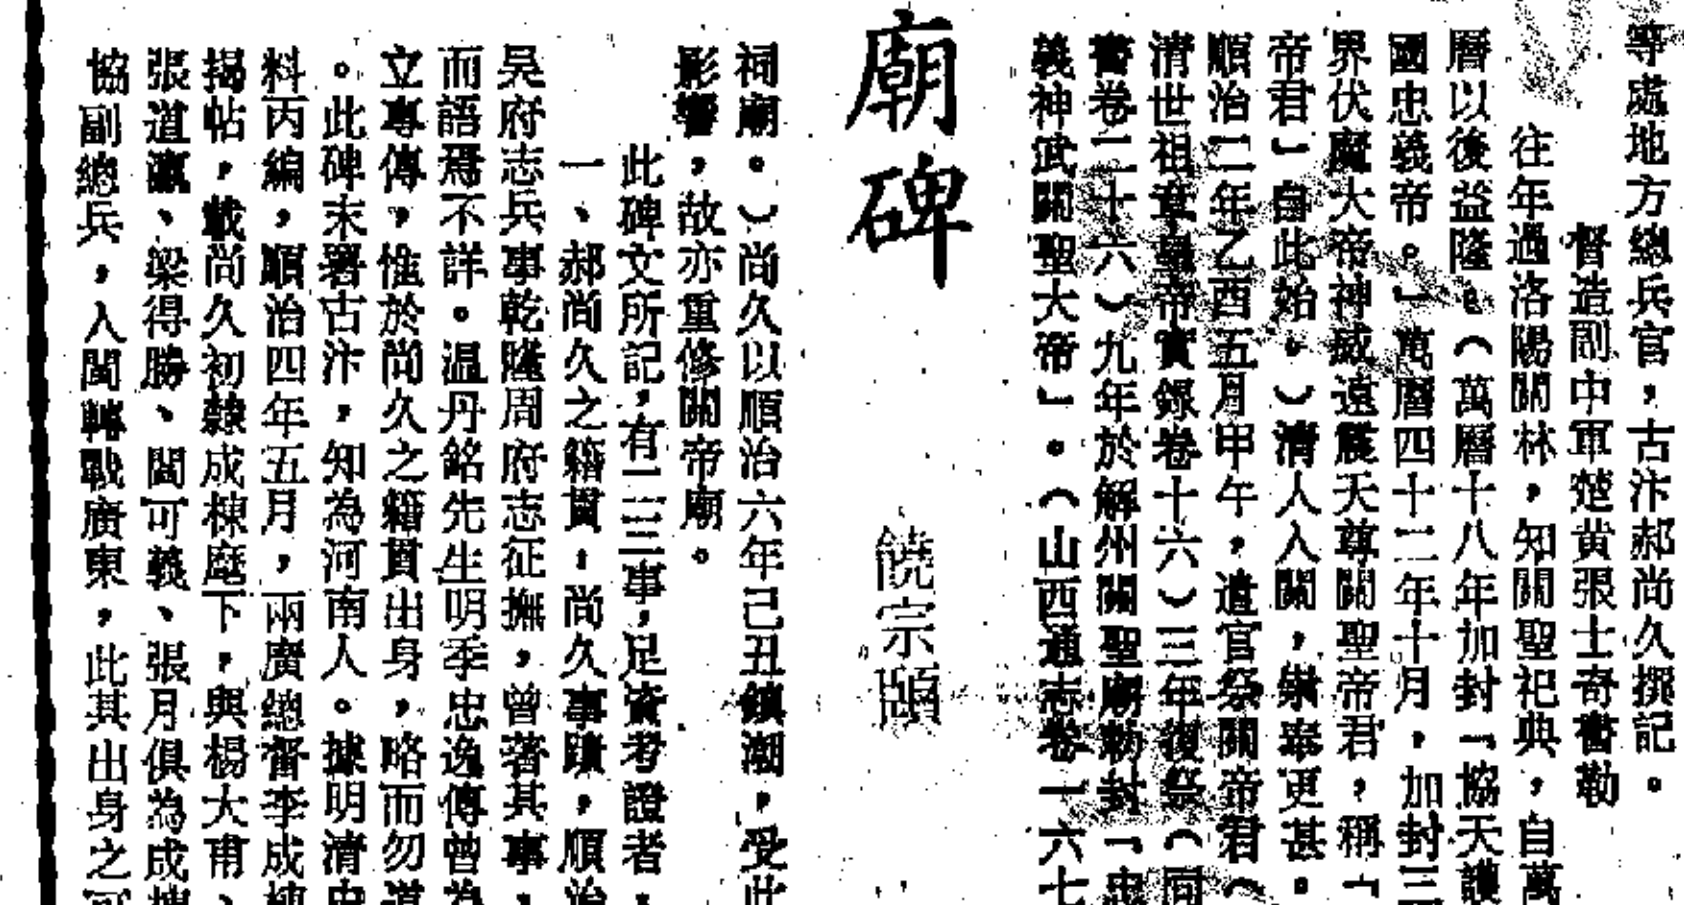 等處地方總兵官，古汴郝尚久撰記。
督造副中軍楚黄張士奇書勒
往年過洛陽關林，知關聖祀典，自萬
曆以後益隆。（萬曆十八年加封「協天護
國忠義帝。」萬曆四十二年十月，加封三
界伏魔大帝神威遠震天尊關聖帝君，稱「
帝君」自此始。）清人入關，崇奉更甚。
順治二年乙酉五月甲午，遣官祭關帝君（
清世祖章皇帝實錄卷十六）三年復祭（同
書卷二十六）九年於解州關聖廟勅封「忠
義神武關聖大帝」。（山西通志卷一六七
廟碑
饒宗頤
祠廟。）尚久以順治六年己丑鎮潮，受此
影響，故亦重修關帝廟。
此碑文所記，有二三事，足資考證者，
一、郝尚久之籍貫：尚久事蹟，順治
吳府志兵事乾隆周府志征撫，曾著其事，
而語焉不詳。温丹銘先生明季忠逸傳曾為
立專傳，惟於尚久之籍貫出身，略而勿道
。此碑末署古汴，知為河南人。據明清史
料丙編，順治四年五月，兩廣總督李成棟
揭帖，載尚久初隸成棟麾下，與楊大甫、
張道瀛、梁得勝、閻可義、張月俱為成棟
協副總兵，入閩轉戰廣東，此其出身之可